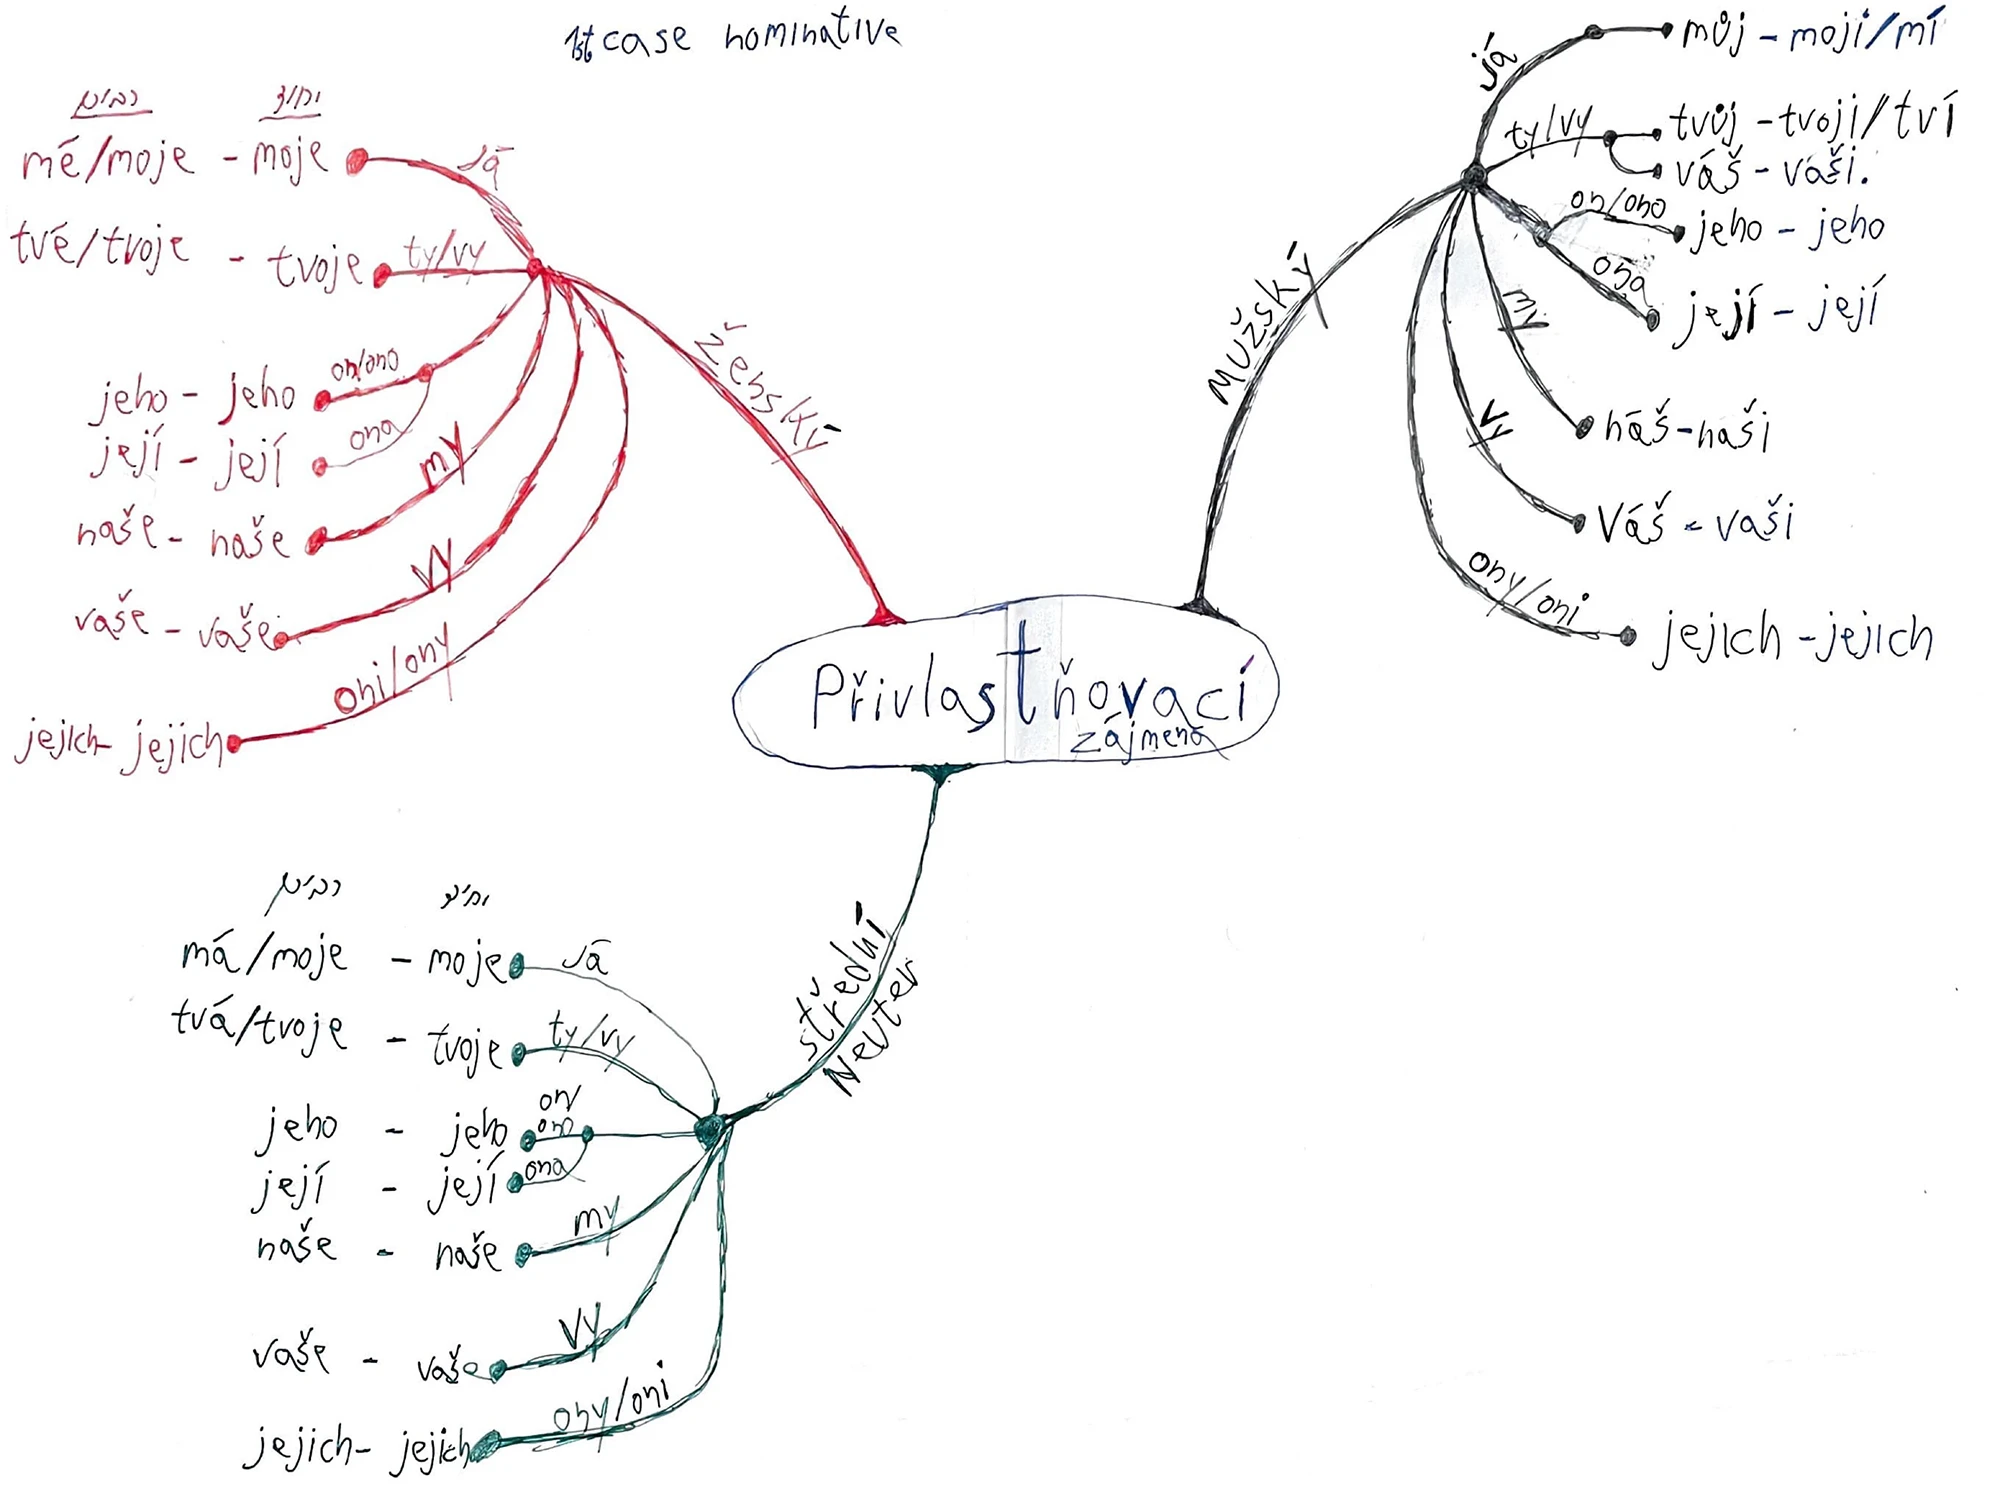 1st case nominative
רבים יחיד
mé/moje - moje já
tvé/tvoje - tvoje ty/vy
jeho - jeho on/ono
její - její ona
naše - naše my
vaše - vaše vy
jejich - jejich oni/ony
ženský
já můj - moji/mí
ty/vy tvůj - tvoji/tví
váš - vaši.
on/ono jeho - jeho
ona její - její
my náš - naši
vy Váš - vaši
ony/oni jejich - jejich
mužský
Přivlastňovací
zájmena
רבים יחיד
má/moje - moje já
tvá/tvoje - tvoje ty/vy
jeho - jeho on/
ono
její - její ona
naše - naše my
vaše - vaše vy
jejich - jejich ony/oni
střední
Neuter